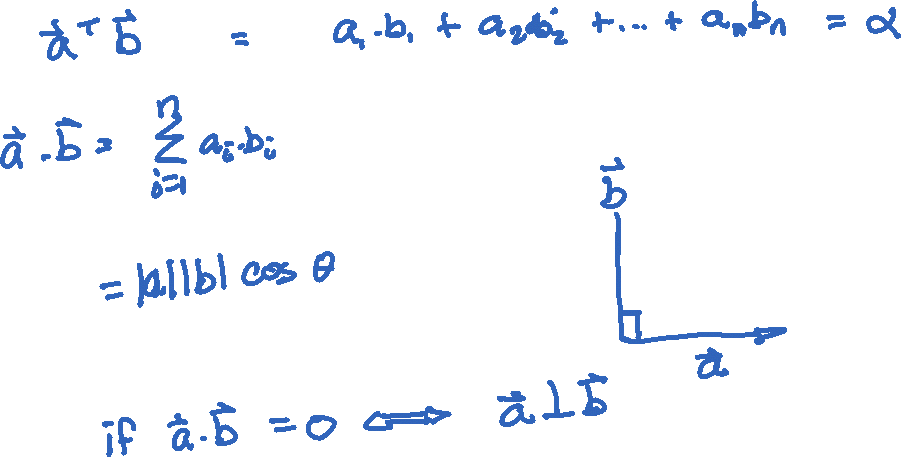 a⃗ᵀ b⃗ = a₁.b₁ + a₂b₂ + ... + aₙbₙ = α
a⃗ . b⃗ = ∑ᵢ₌₁ⁿ aᵢ.bᵢ
= |a||b| cos θ
b⃗
a⃗
if a⃗ . b⃗ = 0 ⟺ a⃗ ⊥ b⃗